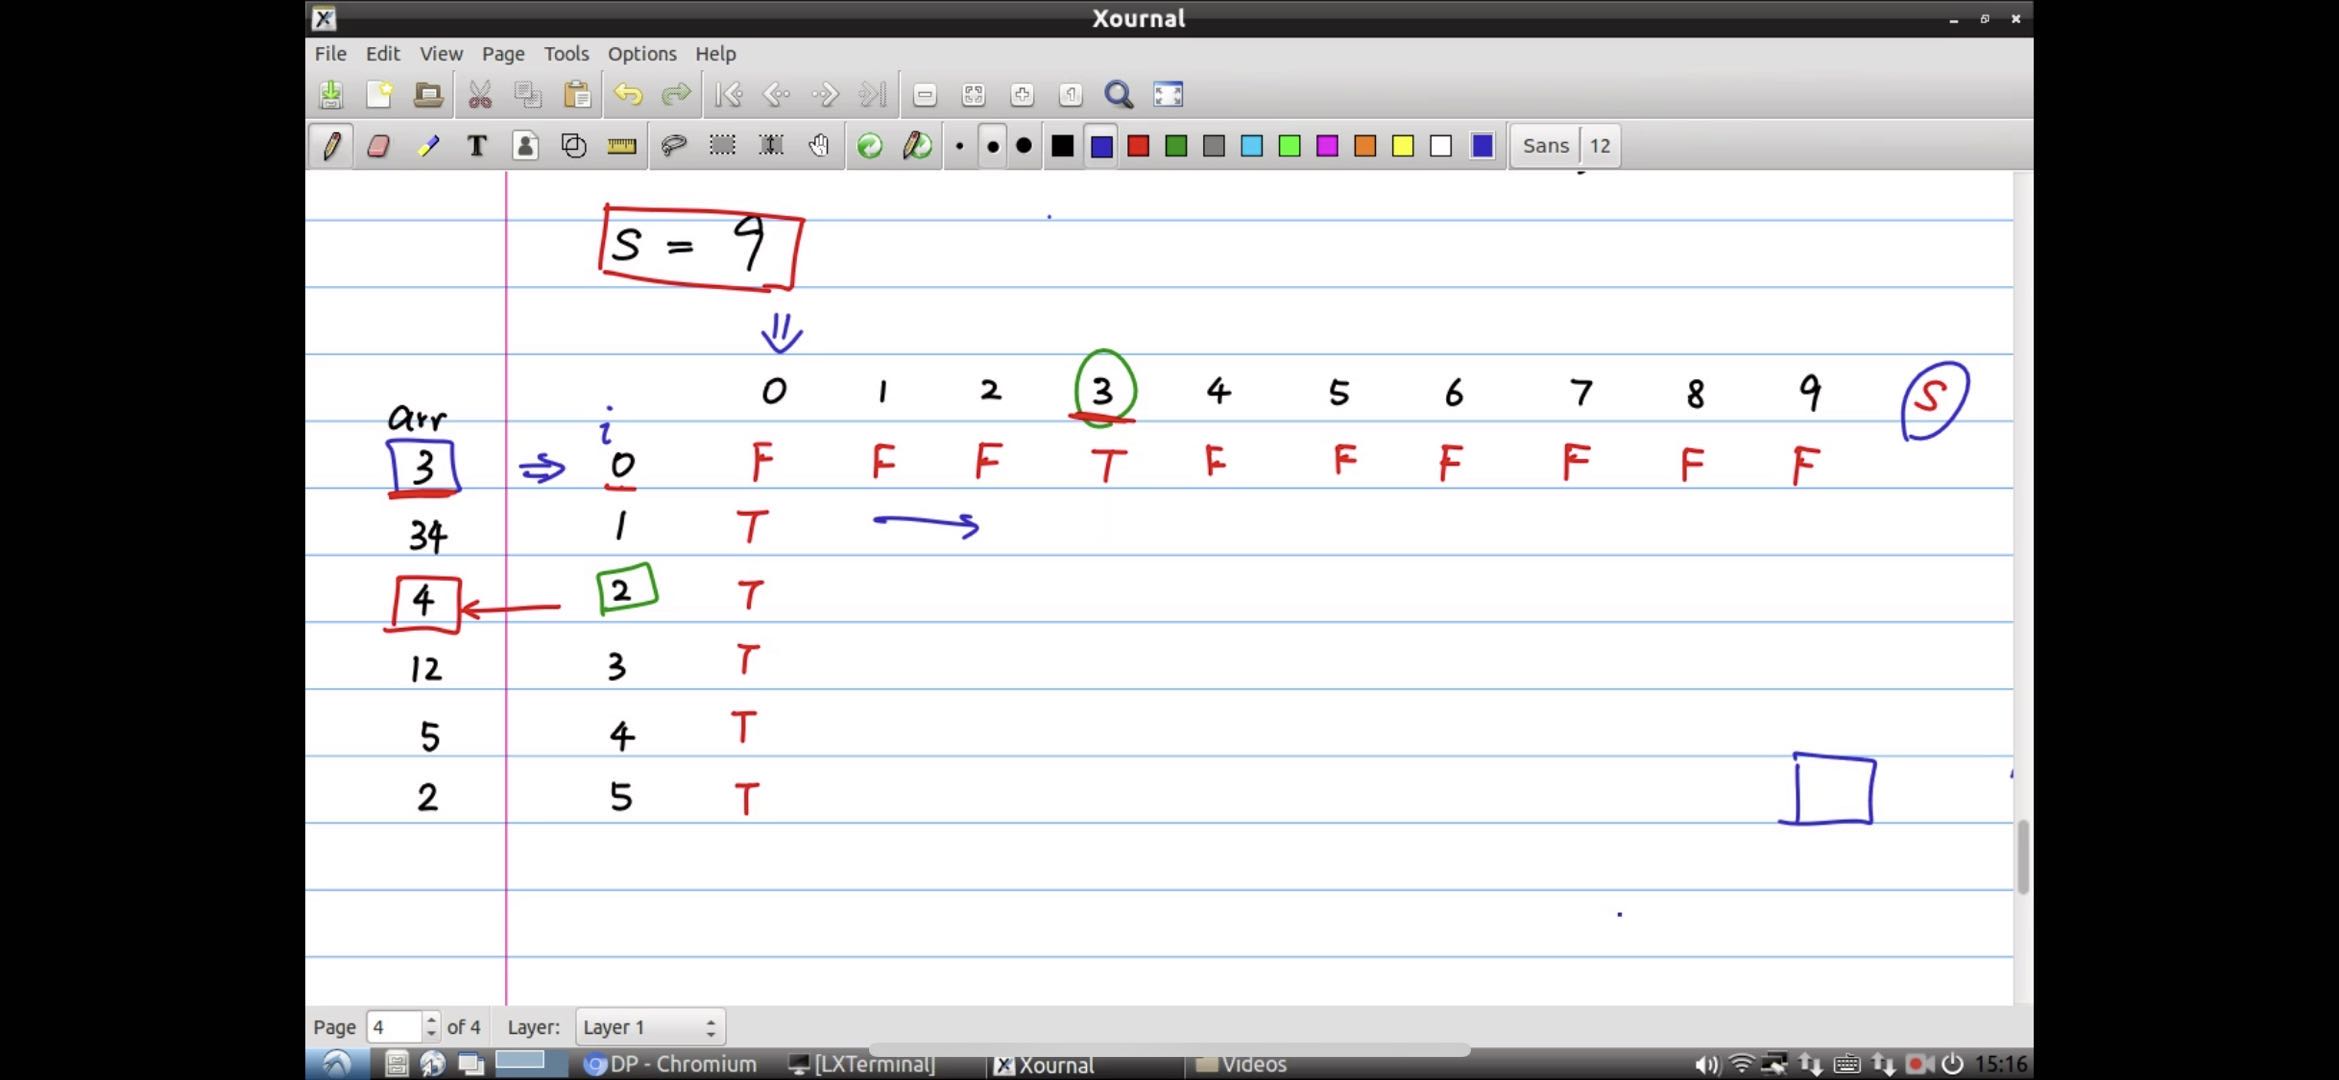 Xournal
File Edit View Page Tools Options Help
T Sans 12
S = 9
0 1 2 3 4 5 6 7 8 9 S
arr i
3 ⇒ 0 F F F T F F F F F F
34 1 T →
4 ← 2 T
12 3 T
5 4 T
2 5 T
Page 4 of 4 Layer: Layer 1
DP - Chromium [LXTerminal] Xournal Videos 15:16